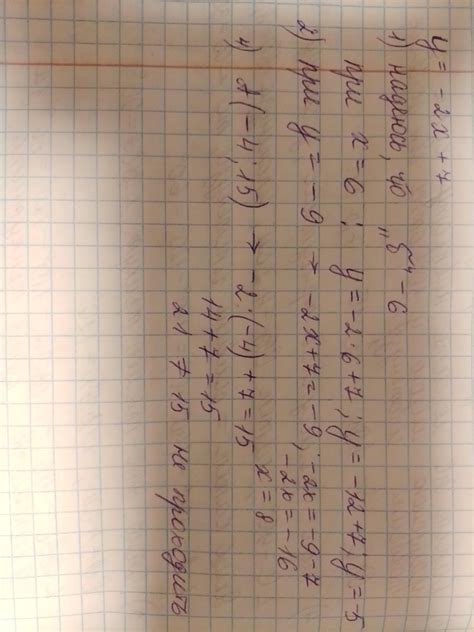 y = -2x + 7
1) надеюсь, что - 6
при x = 6 ; y = -2·6+7; y = -12+7; y = -5
2) при y = -9 → -2x+7 = -9; -2x = -9-7
-2x = -16
x = 8
4) A(-4; 15) → -2·(-4)+7 = 15
14+7 = 15
21 ≠ 15 не проходит